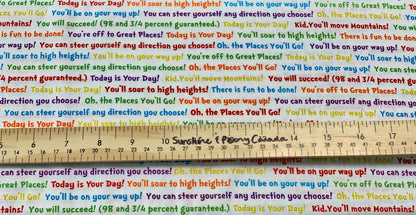 is fun to be done! You'll be on your way up! You're off to Great Places! Today is Your Day! You'll soar to high heights! You'll be on your way up! You're off to Great Places!
Mountains! You will succeed! (98 and 3/4 percent guaranteed.) Today is Your Day! Kid. You'll move Mountains! You will succeed!
is fun to be done! You're off to Great Places! Today is Your Day! You'll soar to high heights! There is fun to be done!
on your way up! You can steer yourself any direction you choose! Oh, the Places You'll Go! You'll be on your way up! You
You can steer yourself any direction you choose! Oh, the Places You'll Go! You'll be on your way up! You can steer
3/4 percent guaranteed.) Today is Your Day! Kid. You'll move Mountains! You will succeed! (98 and 3/4 percent guaranteed.)
Great Places! Today is Your Day! You'll soar to high heights! There is fun to be done! You're off to Great Places! Today is
you choose! Oh, the Places You'll Go! You'll be on your way up! You can steer yourself any direction you choose!
You can steer yourself any direction you choose! Oh, the Places You'll Go! You'll be on your way up! You can
Today is Your Day!
6 7 8 9 10 Sunshine & Peony Canada 14 15 16 17
You can steer yourself any direction you choose! Oh, the Places You'll Go! You'll be on your way up! You can
Great Places! Today is Your Day! You'll soar to high heights! You'll be on your way up! You're off to Great Places!
on your way up! You can steer yourself any direction you choose! Oh, the Places You'll Go! You'll be on your way up!
Mountains! You will succeed! (98 and 3/4 percent guaranteed.) Today is Your Day! Kid. You'll move Mountains!